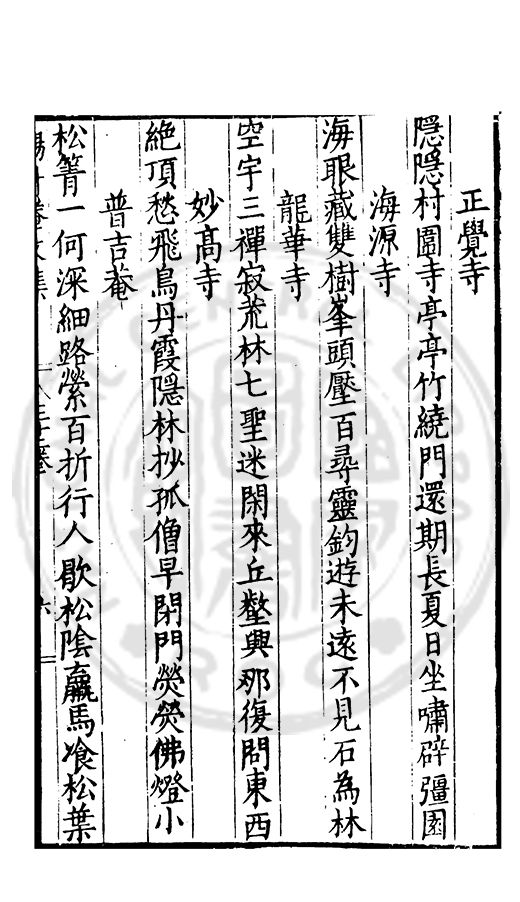 正覺寺
隱隱村園寺亭亭竹繞門還期長夏日坐嘯辟彊園
海源寺
海眼藏雙樹峯頭壓百尋靈鈞遊未遠不見石為林
龍華寺
空宇三禪寂荒林七聖迷閑來丘壑興那復問東西
妙高寺
絶頂愁飛鳥丹霞隱林抄孤僧早閉門熒熒佛燈小
普吉菴
松箐一何深細路縈百折行人歇松陰羸馬飡松葉